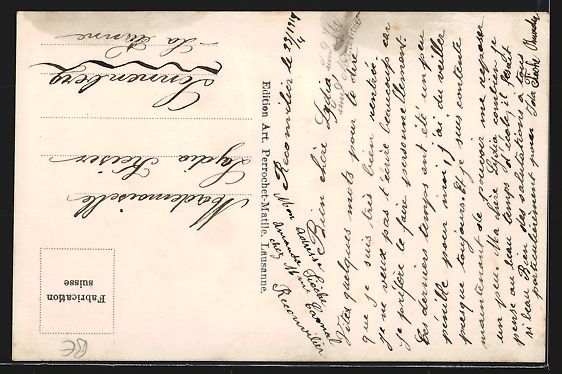 Reconvilier le 23/1/14
Bien chère Lydia
Vite quelques mots pour te dire
que je suis très bien rentrée.
je ne veux pas t'écrire beaucoup car
je préfère le faire personnellement.
Ces derniers temps ont été un peu
pénible pour moi, j'ai du veiller
presque toujours. Et je suis contente
maintenant de pouvoir me reposer
un peu. Ma chère Lydia combien je
pense au beau temps d'école, il serait
si beau. Bien des salutations à tous
particulièrement pour Ida
Mon adresse
chez Mme
Reconvilier
Edition Art. Perrochet-Matile, Lausanne.
Fabrication
suisse
Mademoiselle
Lydia Keiser
Sonnenberg
La
BE